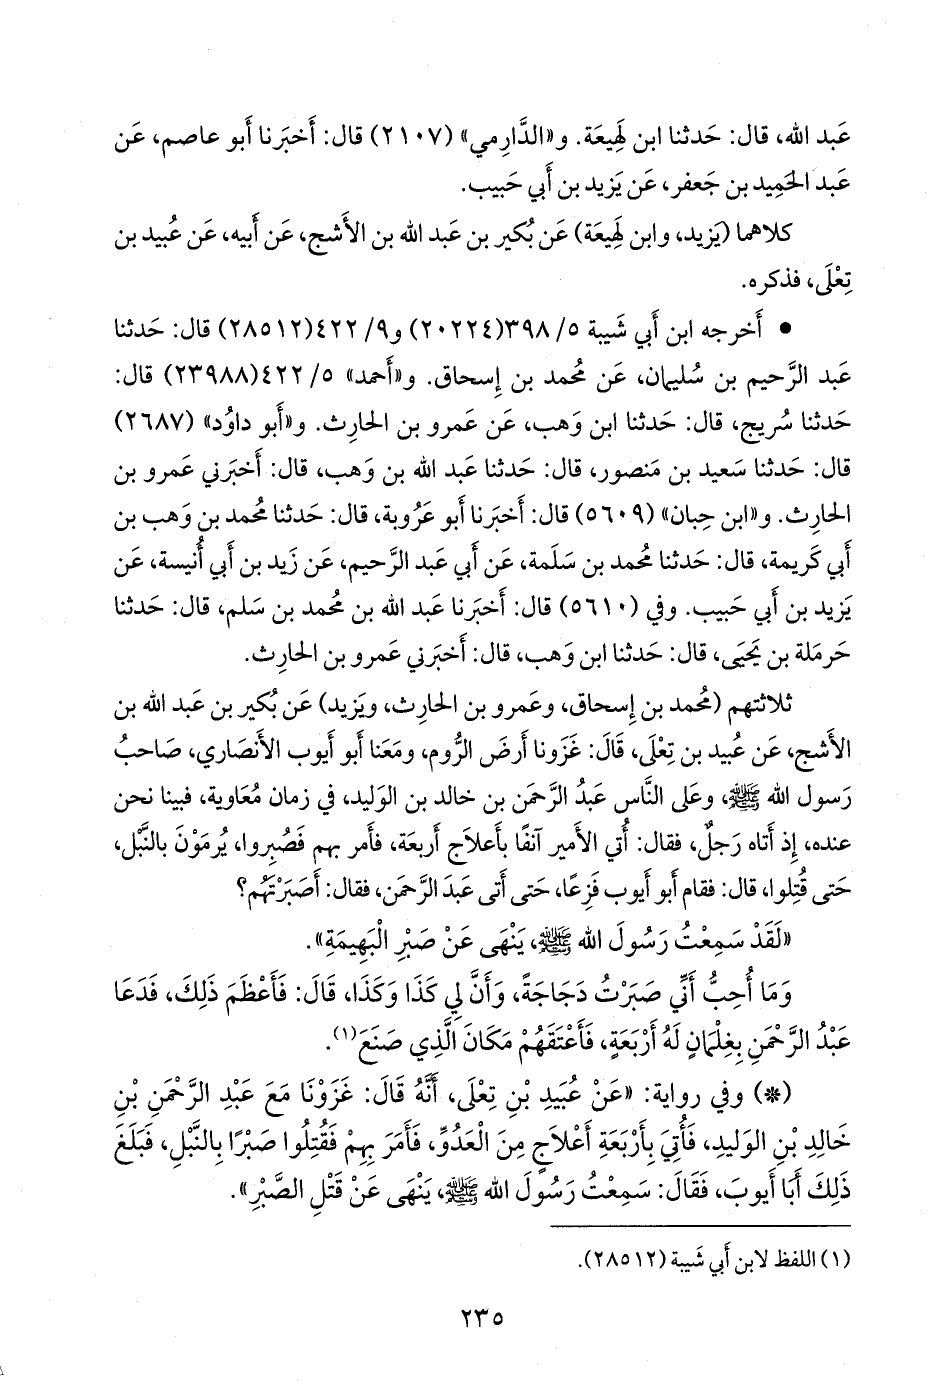 عَبد الله، قال: حَدثنا ابن لَهِيعَة. و«الدَّارِمي» (٢١٠٧) قال: أَخبَرنا أَبو عاصم، عَن
عَبد الحَمِيد بن جَعفر، عَن يَزيد بن أَبي حَبيب.
كلاهما (يَزيد، وابن لَهِيعَة) عَن بُكير بن عَبد الله بن الأَشج، عَن أَبيه، عَن عُبيد بن
تِعْلَى، فذكره.
• أَخرجه ابن أَبي شَيبة ٥/ ٣٩٨(٢٠٢٢٤) و٩/ ٤٢٢(٢٨٥١٢) قال: حَدثنا
عَبد الرَّحيم بن سُليمان، عَن مُحمد بن إِسحاق. و«أَحمد» ٥/ ٤٢٢(٢٣٩٨٨) قال:
حَدثنا سُريج، قال: حَدثنا ابن وَهب، عَن عَمرو بن الحارِث. و«أَبو داوُد» (٢٦٨٧)
قال: حَدثنا سَعيد بن مَنصور، قال: حَدثنا عَبد الله بن وَهب، قال: أَخبَرني عَمرو بن
الحارِث. و«ابن حِبان» (٥٦٠٩) قال: أَخبَرنا أَبو عَرُوبة، قال: حَدثنا مُحمد بن وَهب بن
أَبي كَريمة، قال: حَدثنا مُحمد بن سَلَمة، عَن أَبي عَبد الرحيم، عَن زَيد بن أَبي أُنيسة، عَن
يَزيد بن أَبي حَبيب. وفي (٥٦١٠) قال: أَخبَرنا عَبد الله بن مُحمد بن سَلم، قال: حَدثنا
حَرملة بن يَحيَى، قال: حَدثنا ابن وَهب، قال: أَخبَرني عَمرو بن الحارِث.
ثلاثتهم (مُحمد بن إِسحاق، وعَمرو بن الحارِث، ويَزيد) عَن بُكير بن عَبد الله بن
الأَشج، عَن عُبيد بن تِعْلَى، قَالَ: غَزَونا أَرضَ الرُّوم، ومَعَنا أَبو أَيوب الأَنصاري، صَاحبُ
رَسول الله ﷺ، وعَلى النَّاس عَبدُ الرَّحمَن بن خالد بن الوَليد، في زمان مُعَاوية، فبينا نحن
عنده، إِذ أَتاه رَجلٌ، فقال: أُتي الأَمير آنفًا بأَعلاج أَربعَة، فأَمر بهم فَصُبِروا، يُرمَوْنَ بالنَّبْل،
حَتى قُتِلوا، قال: فقام أَبو أَيوب فَزِعًا، حَتى أَتى عَبدَ الرَّحمَن، فقال: أَصَبَرْتَهُم؟
«لَقَدْ سَمِعْتُ رَسُولَ الله ﷺ، يَنْهَى عَنْ صَبْرِ الْبَهِيمَةِ».
وَمَا أُحِبُّ أَنِّي صَبَرْتُ دَجَاجَةً، وَأَنَّ لِي كَذَا وَكَذَا، قَالَ: فَأَعْظَمَ ذَلِكَ، فَدَعَا
عَبْدُ الرَّحْمَنِ بِغِلْمَانٍ لَهُ أَرْبَعَةٍ، فَأَعْتَقَهُمْ مَكَانَ الَّذِي صَنَعَ(١).
(*) وفي رواية: «عَنْ عُبَيدِ بْنِ تِعْلَى، أَنَّهُ قَالَ: غَزَوْنَا مَعَ عَبْدِ الرَّحْمَنِ بْنِ
خَالِدِ بْنِ الوَلِيدِ، فَأُتِيَ بِأَرْبَعَةِ أَعْلاَجٍ مِنَ الْعَدُوِّ، فَأَمَرَ بِهِمْ فَقُتِلُوا صَبْرًا بِالنَّبْلِ، فَبَلَغَ
ذَلِكَ أَبَا أَيوبَ، فَقَالَ: سَمِعْتُ رَسُولَ الله ﷺ، يَنْهَى عَنْ قَتْلِ الصَّبْرِ».
(١) اللفظ لابن أَبي شَيبة (٢٨٥١٢).
٢٣٥